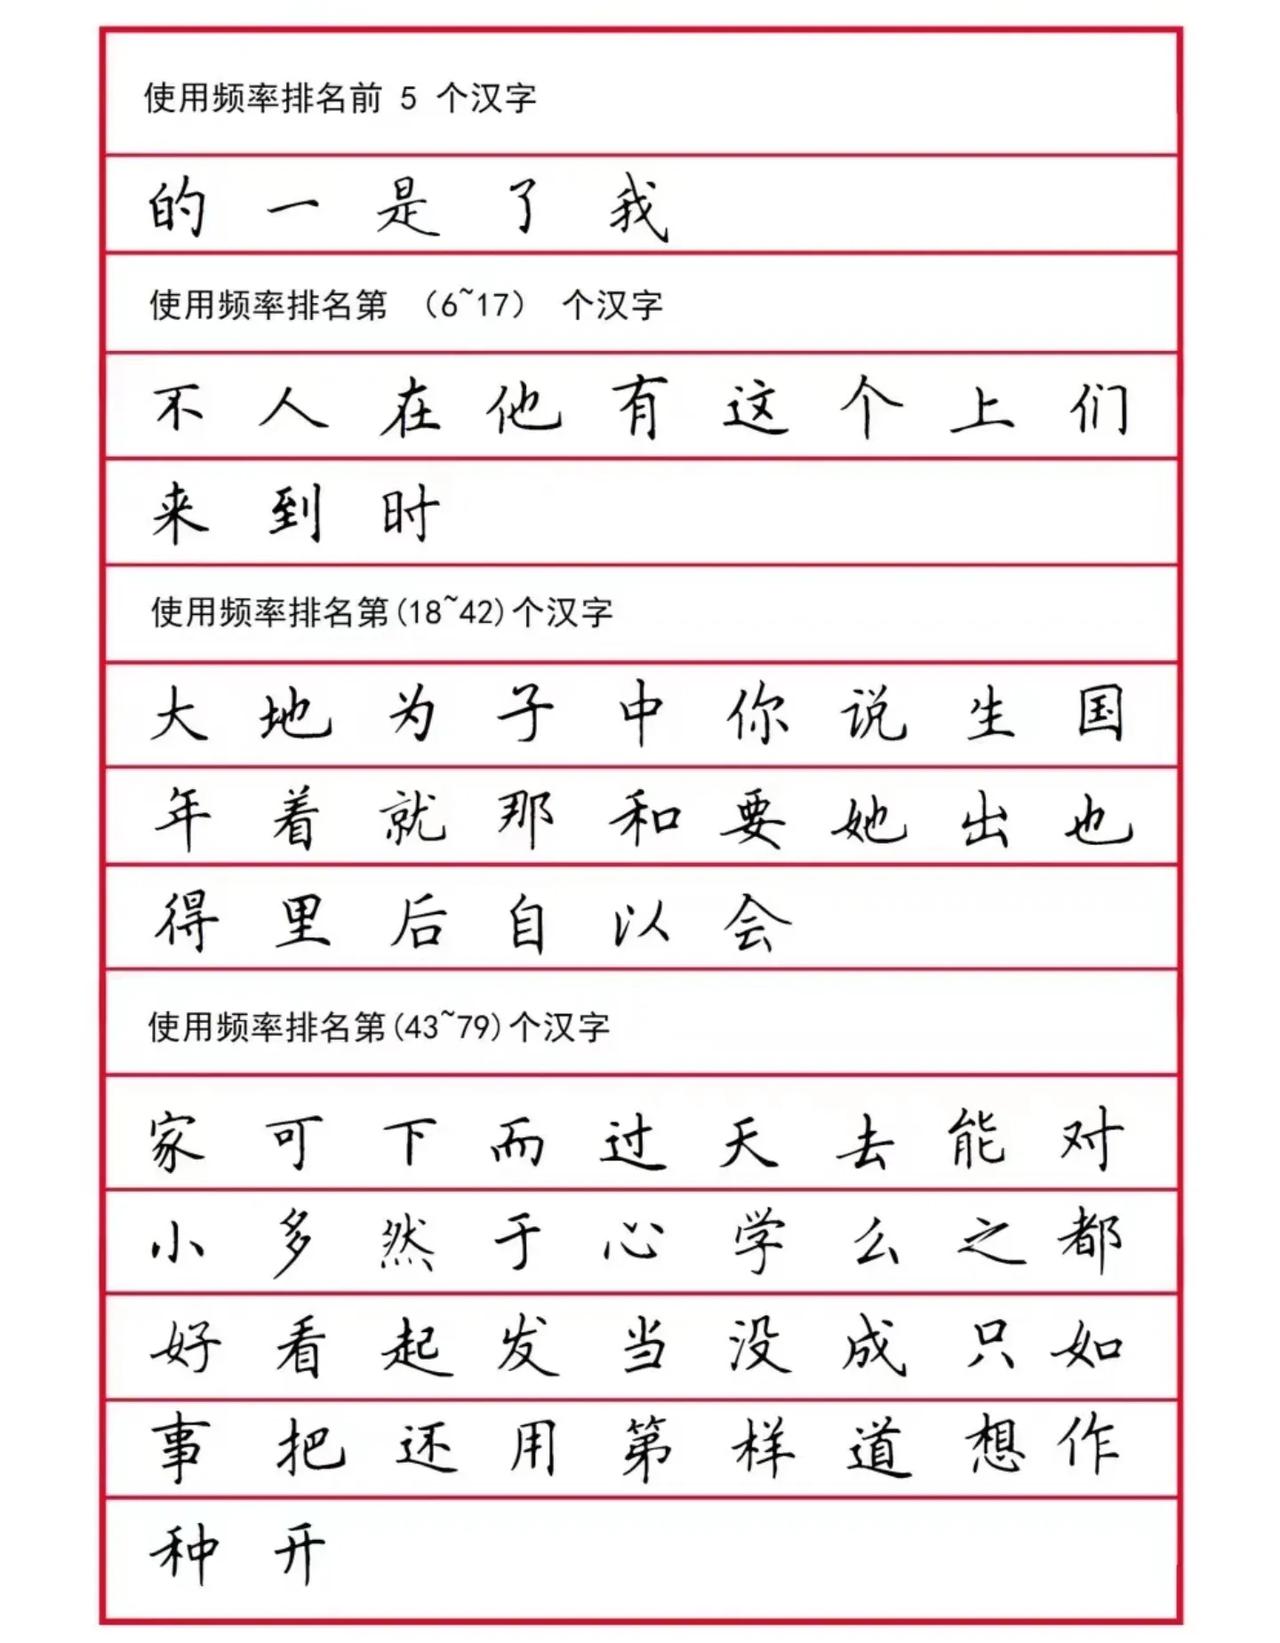 使用频率排名前 5 个汉字
的 一 是 了 我
使用频率排名第 （6~17） 个汉字
不 人 在 他 有 这 个 上 们
来 到 时
使用频率排名第(18~42)个汉字
大 地 为 子 中 你 说 生 国
年 着 就 那 和 要 她 出 也
得 里 后 自 以 会
使用频率排名第(43~79)个汉字
家 可 下 而 过 天 去 能 对
小 多 然 于 心 学 么 之 都
好 看 起 发 当 没 成 只 如
事 把 还 用 第 样 道 想 作
种 开